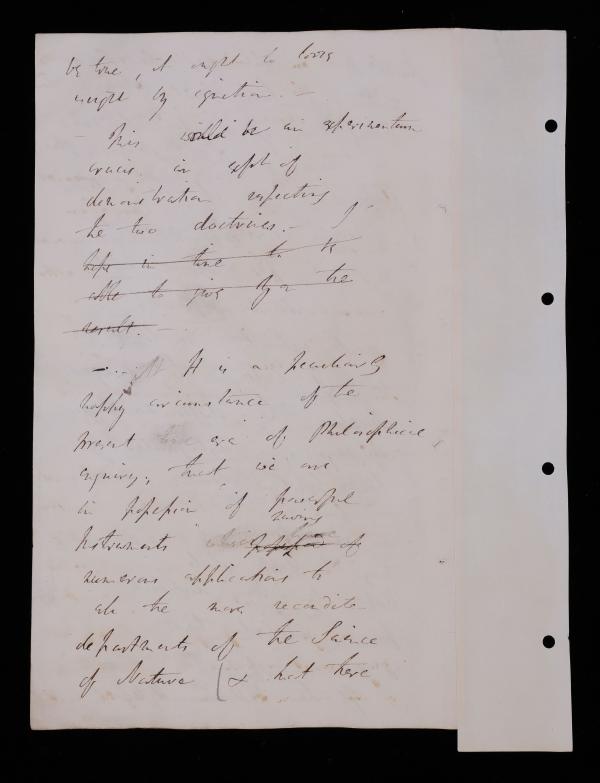 be true, it ought to loose
weight by ignition. —
— This would be an experimentum
crucis in expt of
demonstration respecting
the two doctrines. — I
hope in time to be
able to give you the
result. —
It is a peculiarly
happy circumstance of the
present era of Philosophical
enquiry, that we are
in possession of powerful
having
Instruments of
numerous applications to
all the more recondite
departments of the Science
of Nature ( & that there